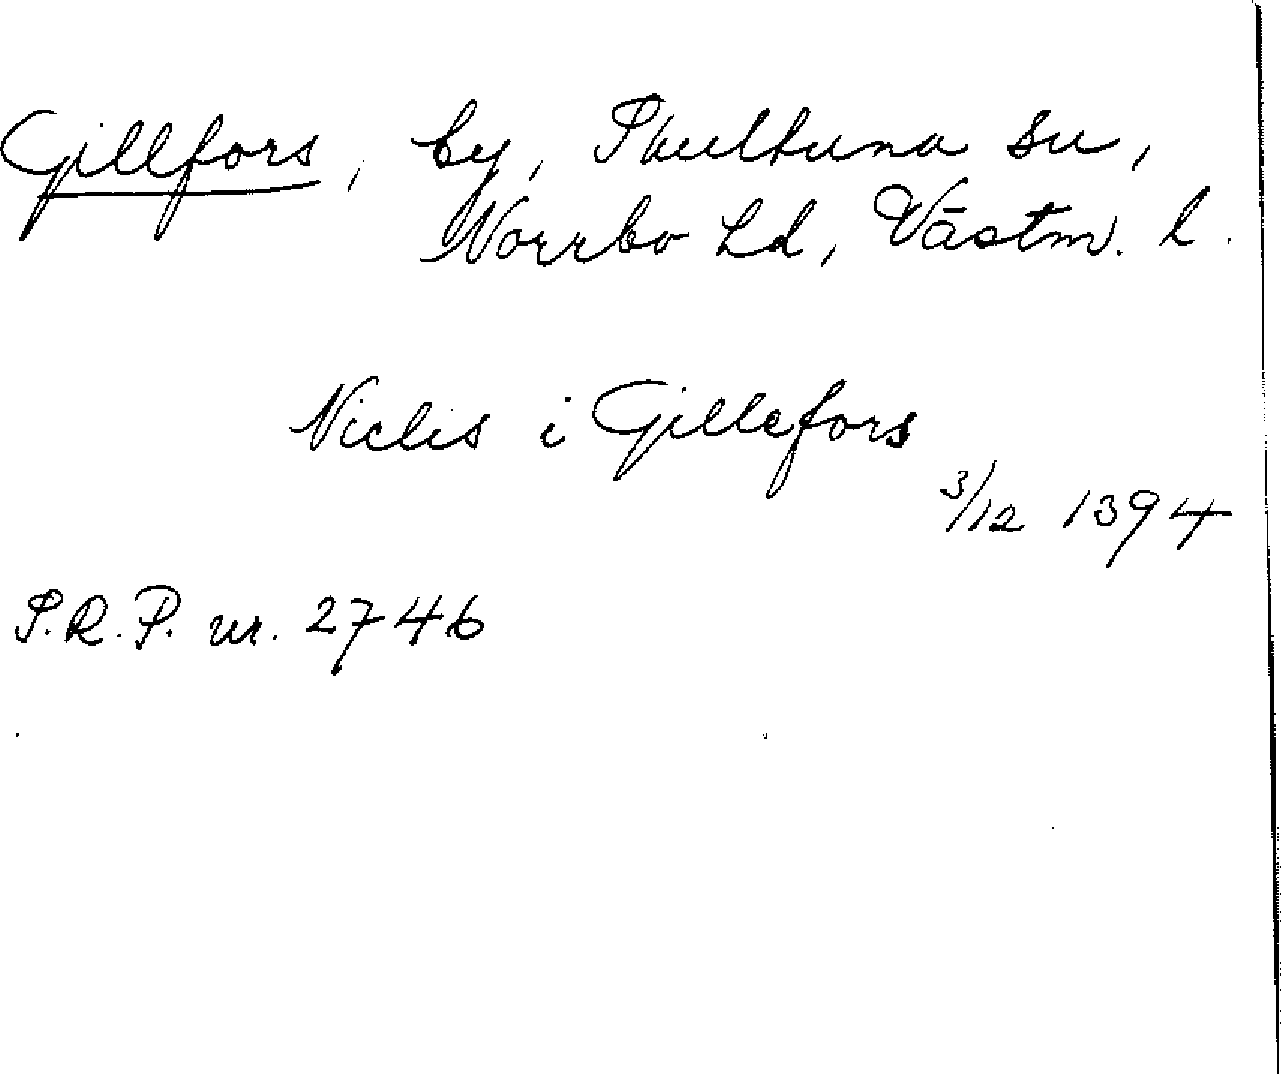 Gillfors, by, Skultuna sn,
Norrbo hd, Västm. l.
Niclis i Gillefors
3/12 1394
S.R.P. nr. 2746